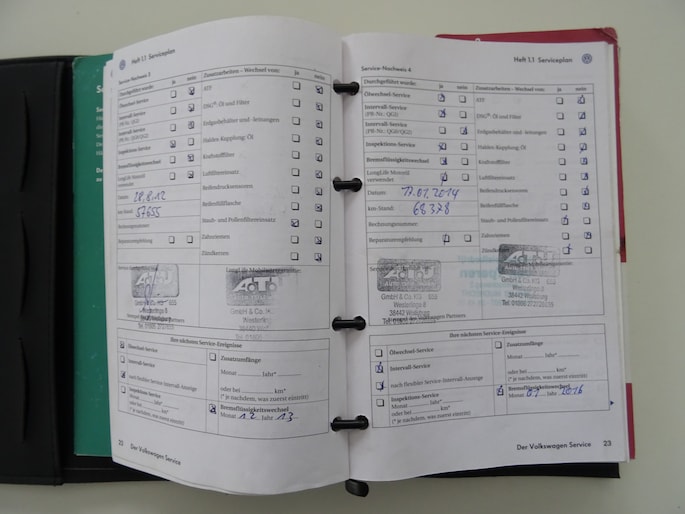 Heft 1.1 Serviceplan
Service-Nachweis 5
Durchgeführt wurde: ja nein
Zusatzarbeiten – Wechsel von: ja nein
Ölwechsel-Service
ATF
Intervall-Service
(PR-Nr.: QG0)
DSG®: Öl und Filter
Intervall-Service
Entgasbehälter und -leitungen
Inspektions-Service
Haldex-Kupplung: Öl
Bremsflüssigkeitswechsel
Kraftstofffilter
LongLife Motoröl
verwendet
Luftfiltereinsatz
Datum: 28.8.12
Reifendrucksensoren
km-Stand: 57655
Reifenfüllflasche
Rechnungsnummer:
Staub- und Pollenfiltereinsatz
Reparaturempfehlung
Zahnriemen
Zündkerzen
A.T.U
GmbH & Co. KG
Westanlage
38442 Wolfsburg
Ihre nächsten Service-Ereignisse
Ölwechsel-Service
Zusatzumfänge
Intervall-Service
Monat Jahr*
nach flexibler Service-Intervall-Anzeige
oder bei km*
(* je nachdem, was zuerst eintritt)
Inspektions-Service
Monat Jahr*
oder bei km*
(* je nachdem, was zuerst eintritt)
Bremsflüssigkeitswechsel
Monat 12 Jahr 13
Der Volkswagen Service
Heft 1.1 Serviceplan
Service-Nachweis 6
Durchgeführt wurde: ja nein
Zusatzarbeiten – Wechsel von: ja nein
Ölwechsel-Service
ATF
Intervall-Service
(PR-Nr.: QG0)
DSG®: Öl und Filter
Intervall-Service
(PR-Nr.: QG1/QG2)
Entgasbehälter und -leitungen
Inspektions-Service
Haldex-Kupplung: Öl
Bremsflüssigkeitswechsel
Kraftstofffilter
LongLife Motoröl
verwendet
Luftfiltereinsatz
Datum: 17.01.2014
Reifendrucksensoren
km-Stand: 68378
Reifenfüllflasche
Rechnungsnummer:
Staub- und Pollenfiltereinsatz
Reparaturempfehlung
Zahnriemen
Zündkerzen
A.T.U
GmbH & Co. KG
38442 Wolfsburg
Ihre nächsten Service-Ereignisse
Ölwechsel-Service
Zusatzumfänge
Intervall-Service
Monat Jahr*
nach flexibler Service-Intervall-Anzeige
oder bei km*
(* je nachdem, was zuerst eintritt)
Inspektions-Service
Monat Jahr*
oder bei km*
(* je nachdem, was zuerst eintritt)
Bremsflüssigkeitswechsel
Monat 01 Jahr 2016
Der Volkswagen Service 23